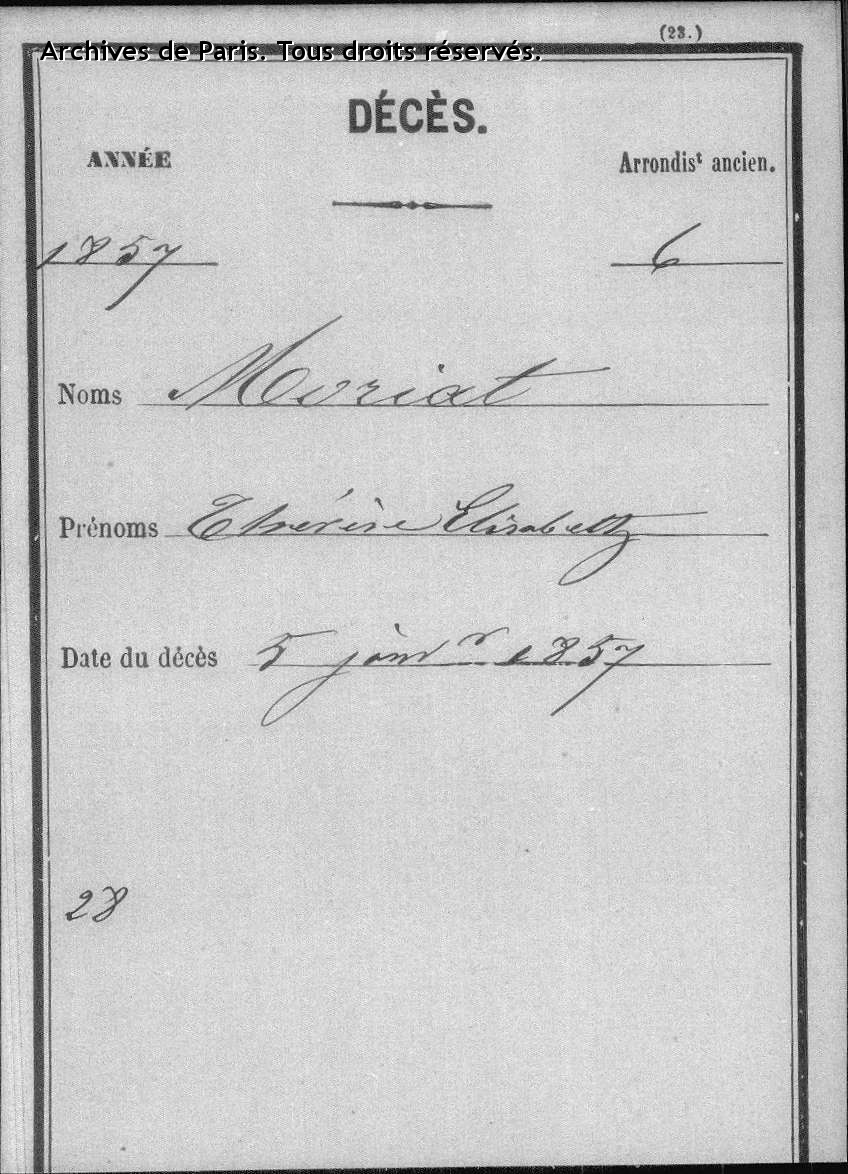 (23.)
Archives de Paris. Tous droits réservés.
DÉCÈS.
ANNÉE Arrondist ancien.
1857 6
Noms Moriat
Prénoms Thérèse Elisabeth
Date du décès 5 janvr 1857
28